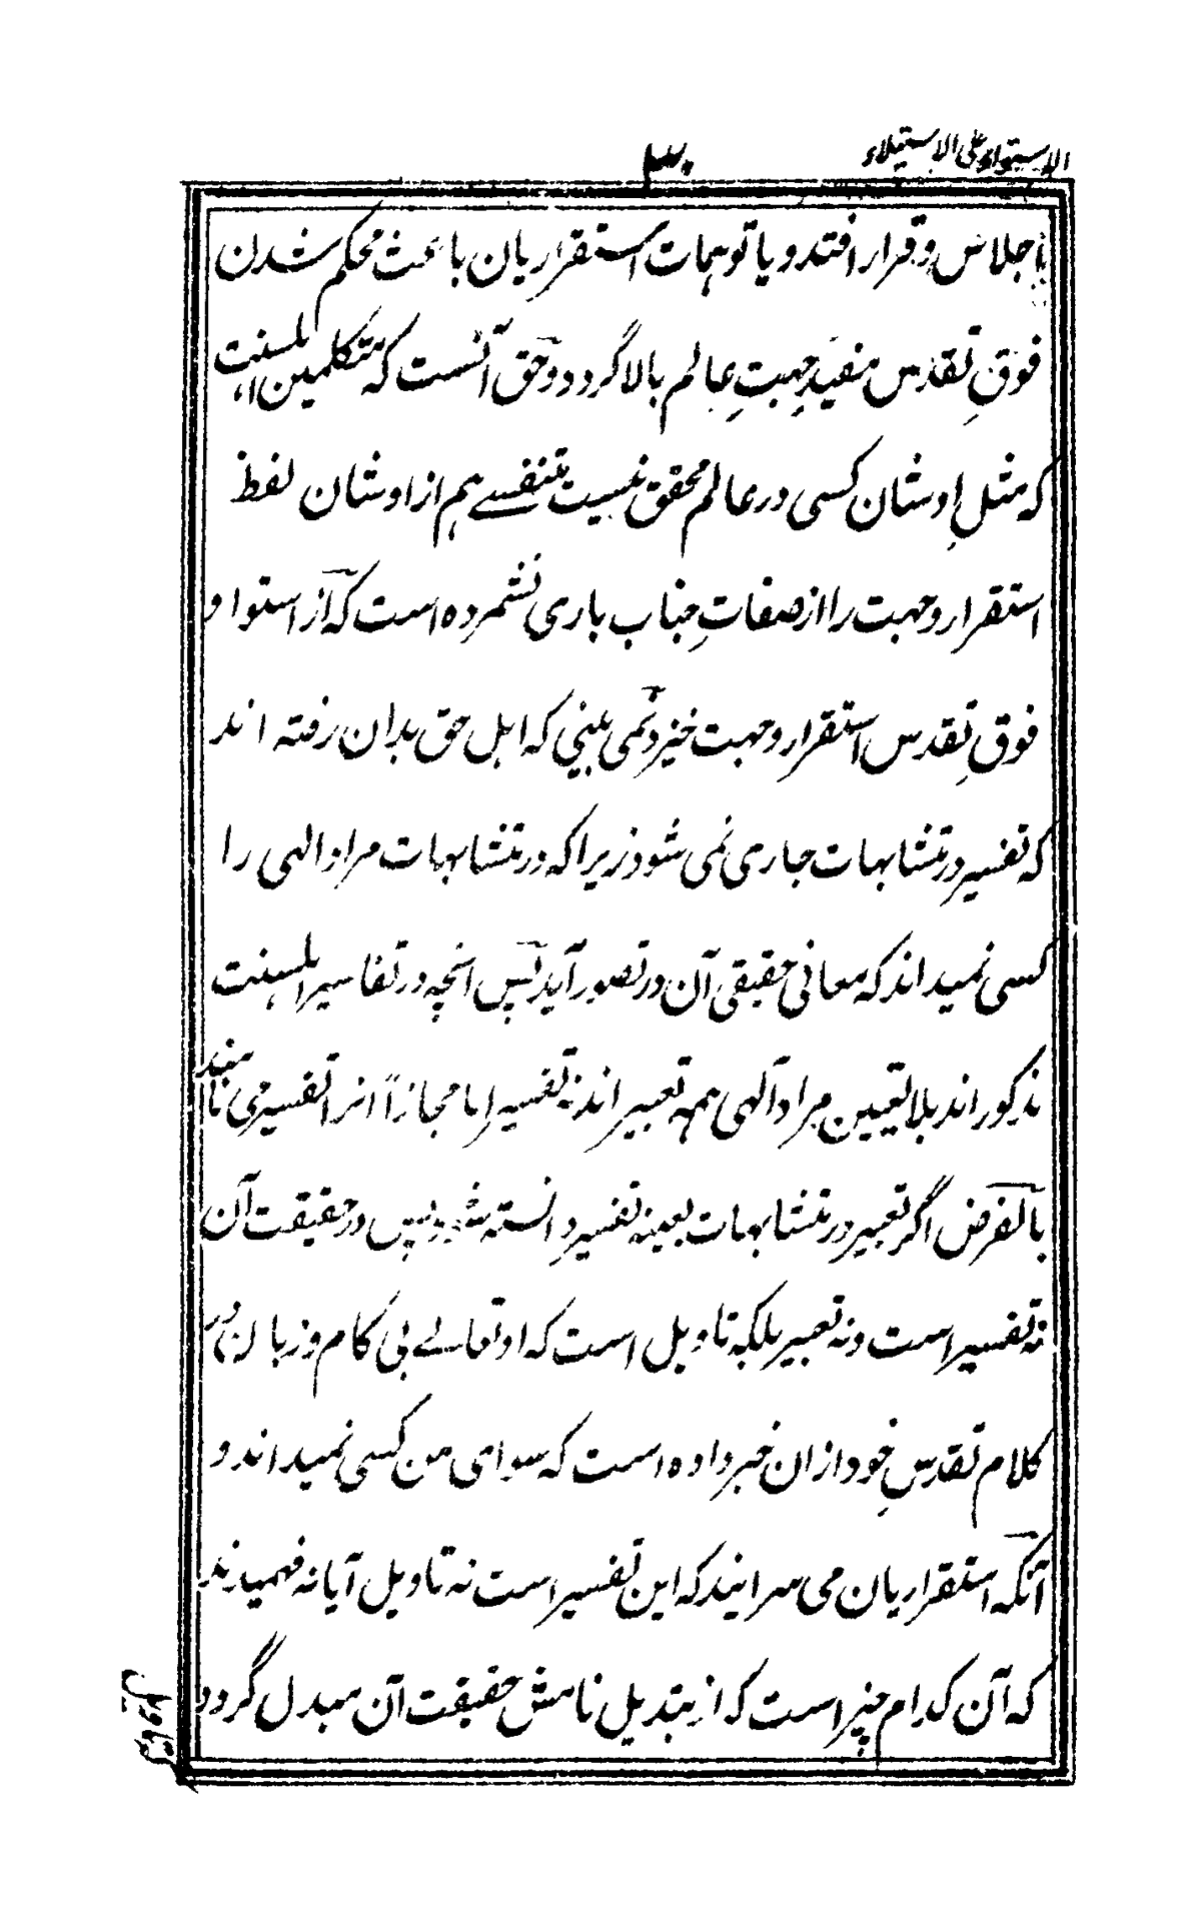 الاستواء علی الاستیلاء
۳۰
باجلاس وقرار افتد و یا توہمات استقراریان باعث محکم شدن
فوقِ تقدس مفیدِ جہتِ عالم بالا گردد و حق آنست کہ متکلمین اہلسنت
کہ مثلِ اوشان کسی در عالم محقق نیست تنفسے ہم از اوشان لفظ
استقرار و جہت را از صفاتِ جناب باری نشمردہ است کہ از استوا و
فوقِ تقدس استقرار و جہت خیزد نمی بینی کہ اہل حق بدان رفتہ اند
کہ تفسیر در متشابہات جاری نمی شود زیرا کہ در متشابہات مراد الہی را
کسی نمیداند کہ معانی حقیقی آن در تصور آید پس انچہ در تفاسیر اہلسنت
مذکور اند بلا تعیین مراد آلہی ہمہ تعبیر اند نہ تفسیر اما مجازاً انرا تفسیر می نامند
بالفرض اگر تعبیر در متشابہات بعینہ تفسیر دانستہ شود پس در حقیقت آن
نہ تفسیر است و نہ تعبیر بلکہ تاویل است کہ او تعالے بی کام و زبان در
کلام تقدسِ خود ازان خبر دادہ است کہ سوای من کسی نمیداند و
آنکہ استقراریان می سرایند کہ این تفسیر است نہ تاویل آیا نہ فہمیدند
کہ آن کدام چیز است کہ از تبدیل نامش حقیقت آن مبدل گردد